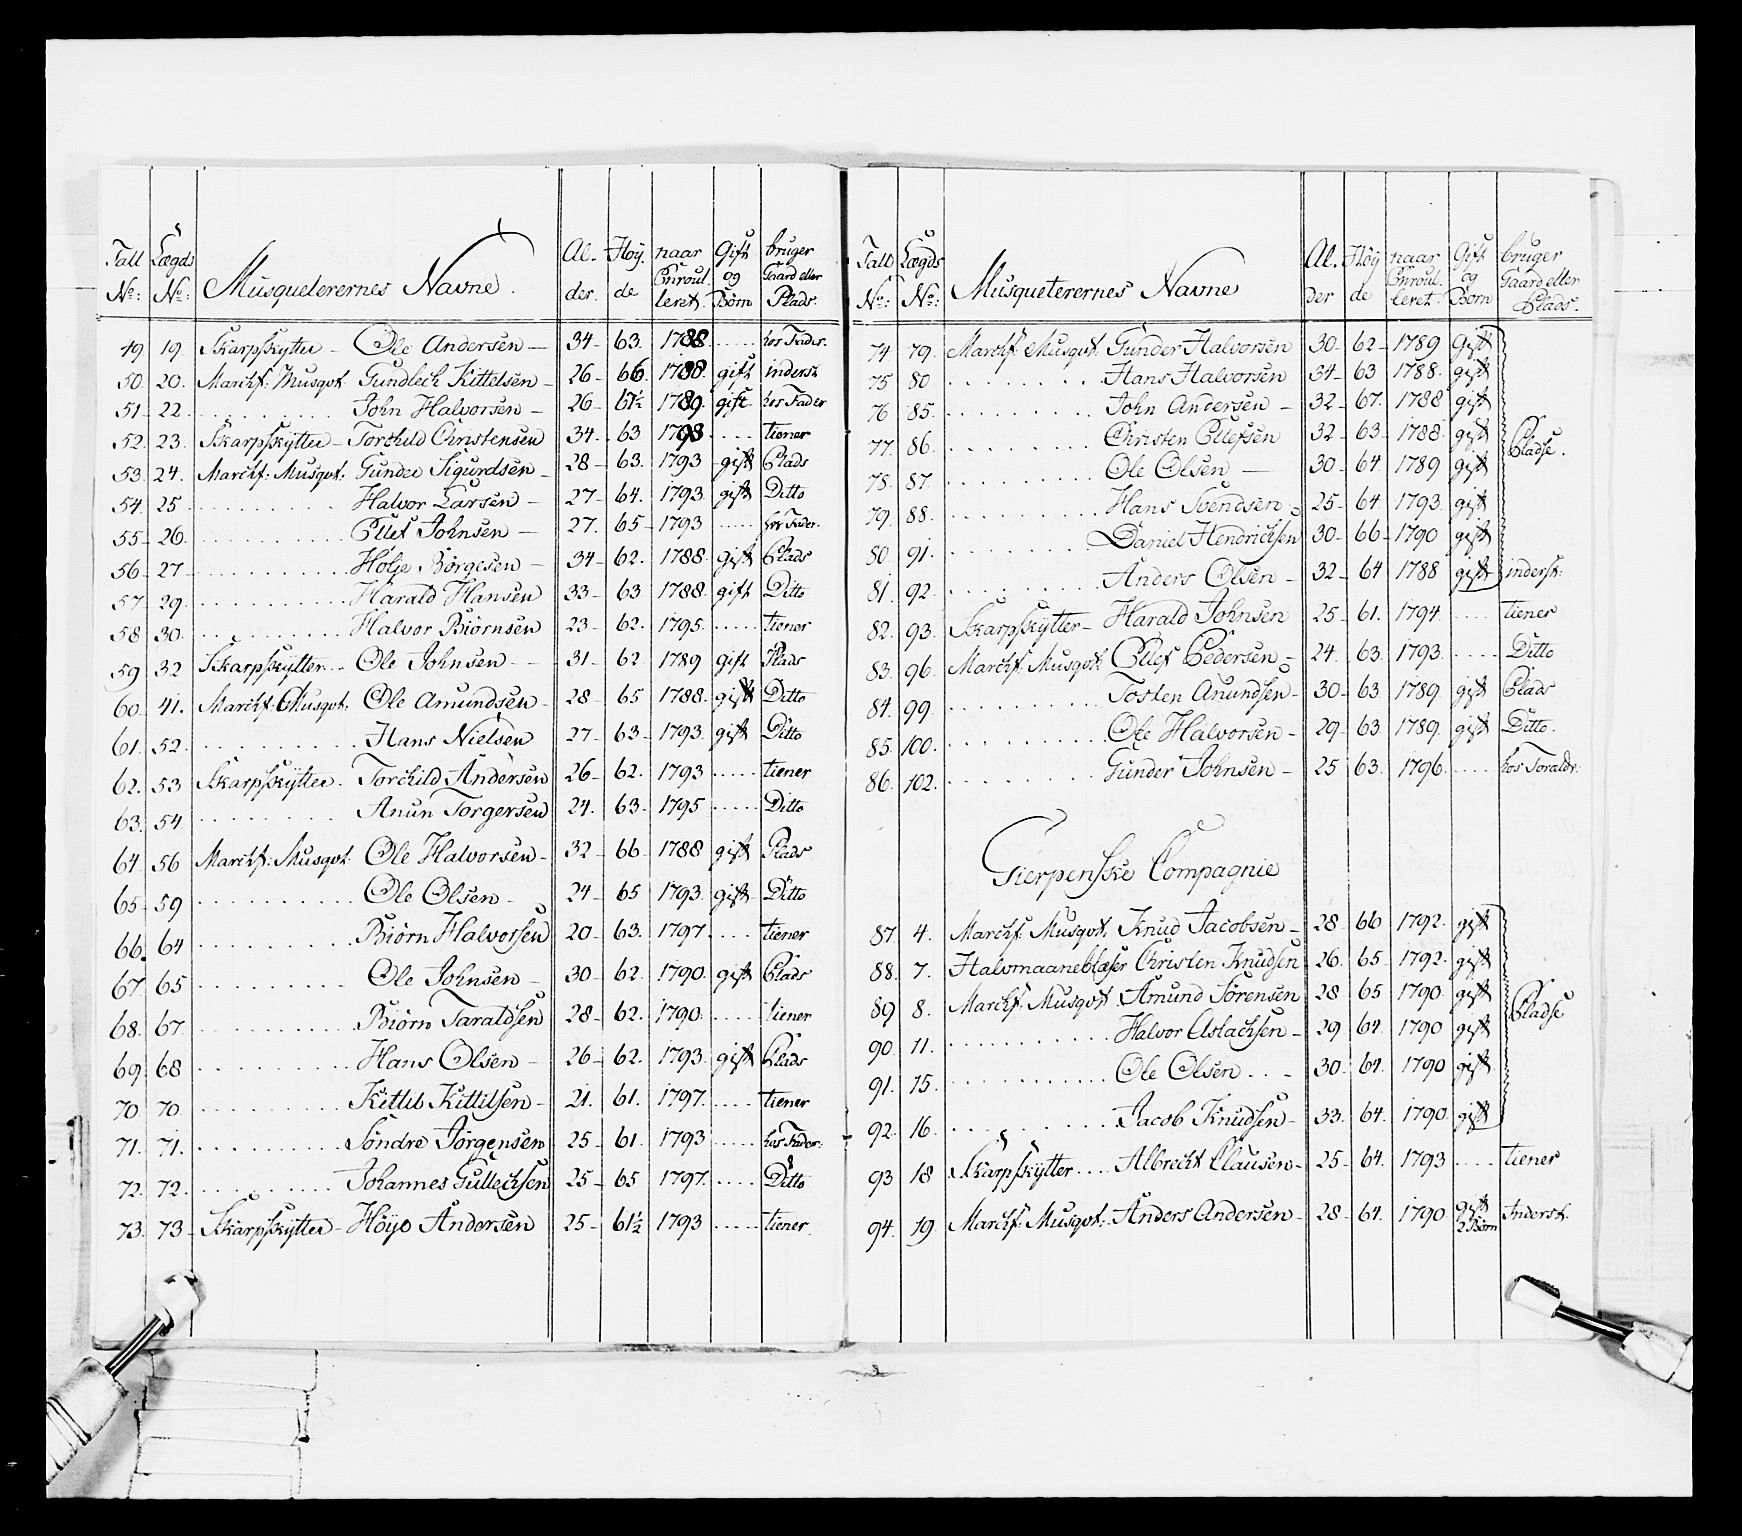 Tall Lægds Musqueterernes Navne. Al- Høy- naar Gift bruger
No: No: der. de Enroul og Gaard eller
leret. Børn Plads.
49. 19. Skarpskytter - Ole Andersen - 34- 63. 1788. ..... hos Fader.
50. 20. Marchf: Musqvt. Gundlech Kittelsen - 26- 66. 1788. gift inderst
51- 22. ......... John Halvorsen - 26- 61½ 1789. gift. hos Fader
52. 23. Skarpskytter - Torchild Christensen 34. 63 1793 .... tiener
53. 24. Marchf: Musqvt. Gunder Sigurdsen - 28- 63. 1793 gift Plads
54. 25 ......... Halvor Larsen - 27- 64. 1793. gift Ditto
55- 26. ......... Ellef Johnsen - 27. 65- 1793 ..... hos Fader.
56- 27- ......... Holje Børgesen - 34- 62. 1788. gift Plads
57- 29. ......... Harald Hansen 33- 63 1788. gift Ditto
58 30. ......... Halvor Biørnsen 23- 62. 1795. ..... tiener
59 32 Skarpskytter .. Ole Johnsen - - 31- 62 1789 gift Plads
60 41. Marchf: Musqvt. Ole Amundsen - 28- 65 1788. gift Ditto
61. 52. ......... Hans Nielsen 27- 63- 1793. gift Ditto
62. 53 Skarpskytter. Torchild Andersen 26- 62. 1793 ..... tiener
63. 54 ......... Anun Torgersen 24. 63. 1795 ..... Ditto
64 56 Marchf: Musqvt. Ole Halvorsen - 32- 66 1788 gift Plads
65- 59 .......... Ole Olsen - 24- 65 1793. gift Ditto
66. 64 ......... Biørn Halvorsen 20- 63. 1797. .... tiener
67 65 ......... Ole Johnsen - 30- 62. 1790. gift Plads
68. 67. ......... Biørn Taraldsen 28- 62. 1790. .... tiener
69. 68 ......... Hans Olsen - 26- 62. 1793. gift Plads
70 70. ......... Kittel Kittilsen - 21. 61. 1797. ..... tiener
71. 71. ......... Søndre Jørgensen 25- 61. 1793 ..... hos Fader.
72. 72. ......... Johannes Gullechsen 25- 65 1797. ..... Ditto
73. 73- Skarpskytter - Høye Andersen 25- 61½ 1793 ..... tiener
Tall Lægds Musqueterernes Navne Al. Høy naar Gift bruger
No: No: der de Enroul og Gaard eller
leret. Børn Plads.
74 79. Marchf: Musqvt. Gunder Halvorsen 30- 62- 1789 Gift
75 80 ........ Hans Halvorsen 34- 63 1788. gift
76 85. ......... John Andersen - 32- 67. 1788 gift
77. 86. ......... Christen Ellefsen 32- 63- 1788. gift Pladse.
78. 87. ......... Ole Olsen - 30- 64. 1789 gift
79. 88. ......... Hans Svendsen 25- 64 1793. gift
80 91. ........ Daniel Hendrichsen 30- 66- 1790 gift
81. 92. ......... Anders Olsen - 32- 64 1788 gift inderst:
82. 93. Skarpskytter - Harald Johnsen 25- 61. 1794. .... tiener
83. 96. Marchf: Musqvt: Ellef Pedersen - 24. 63. 1793. .... Ditto
84. 99. ......... Tosten Anundsen - 30- 63 1789 gift Plads
85. 100. ......... Ole Halvorsen - 29- 63. 1789. gift Ditto.
86. 102. ......... Gunder Johnsen - 25 63. 1796. .... hos Foraldr.
Gierpenske Compagnie
87. 4. Marchf: Musqvt. Knud Jacobsen - 28 66 1792. gift
88. 7. Halvmaaneblæser Christen Knudsen 26. 65- 1792. gift
89 8. Marchf: Musqvt Amund Sørensen 28 65 1790. gift Pladse
90. 11. ........... Halvor Aslachsen - 29 64. 1790 gift
91. 15. .......... Ole Olsen .. - 30. 64. 1790 gift
92. 16. ......... Jacob Knudsen - 33. 64. 1790. gift
93 18 Skarpskytter .... Albrecht Clausen - 25- 64. 1793 .... tiener
94. 19. Marchf: Musqvt. Anders Andersen - 28- 64. 1790 gift 2 Børn Inderst.